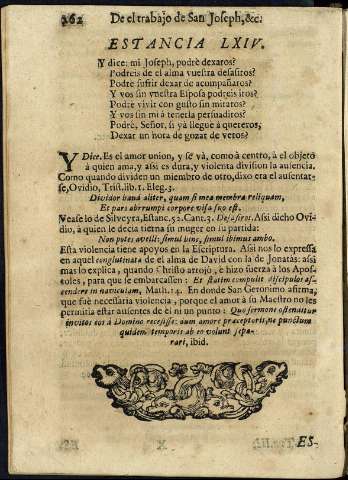 262 De el trabajo de San Joseph, &c.
ESTANCIA LXIV.
Y dice: mi Joseph, podrè dexaros?
Podreis de el alma vuestra desasiros?
Podrè sufrir dexar de acompañaros?
Y vos sin vuestra Esposa podreis iros?
Podrè vivir con gusto sin miraros?
Y vos sin mi à tenerla persuadiros?
Podrè, Señor, si yà lleguè à quereros,
Dexar un hora de gozar de veros?
Y Dice. Es el amor union, y sè và, como à centro, à el objeto
à quien ama, y assi es dura, y violenta division la ausencia.
Como quando dividen un miembro de otro, dixo era el ausentar-
se, Ovidio, Trist. lib. 1. Eleg. 3.
Dividor haud aliter, quam si mea membra reliquam,
Et pars abrrumpi corpore visa suo est.
Vease lo de Silveyra, Estanc. 52. Cant. 3. Desasiros. Assi dicho Ovi-
dio, à quien le decia tierna su muger en su partida:
Non potes avelli: simul hinc, simul ibimus ambo.
Esta violencia tiene apoyos en la Escriptura. Assi nos lo expressa
en aquel conglutinata de el alma de David con la de Jonatàs: assi
mas lo explica, quando Christo arrojò, è hizo fuerza à los Apos-
toles, para que se embarcassen: Et statim compulit discipulos as-
cendere in naviculam, Math. 14. En donde San Geronimo afirma,
que fuè necessaria violencia, porque el amor à su Maestro no les
permitia estar ausentes de èl ni un punto: Quo sermone ostenditur
invitos eos à Domino recessisse: dum amore præceptoris, ne punctum
quidem temporis ab eo volunt sepa-
rari, ibid.
ES-